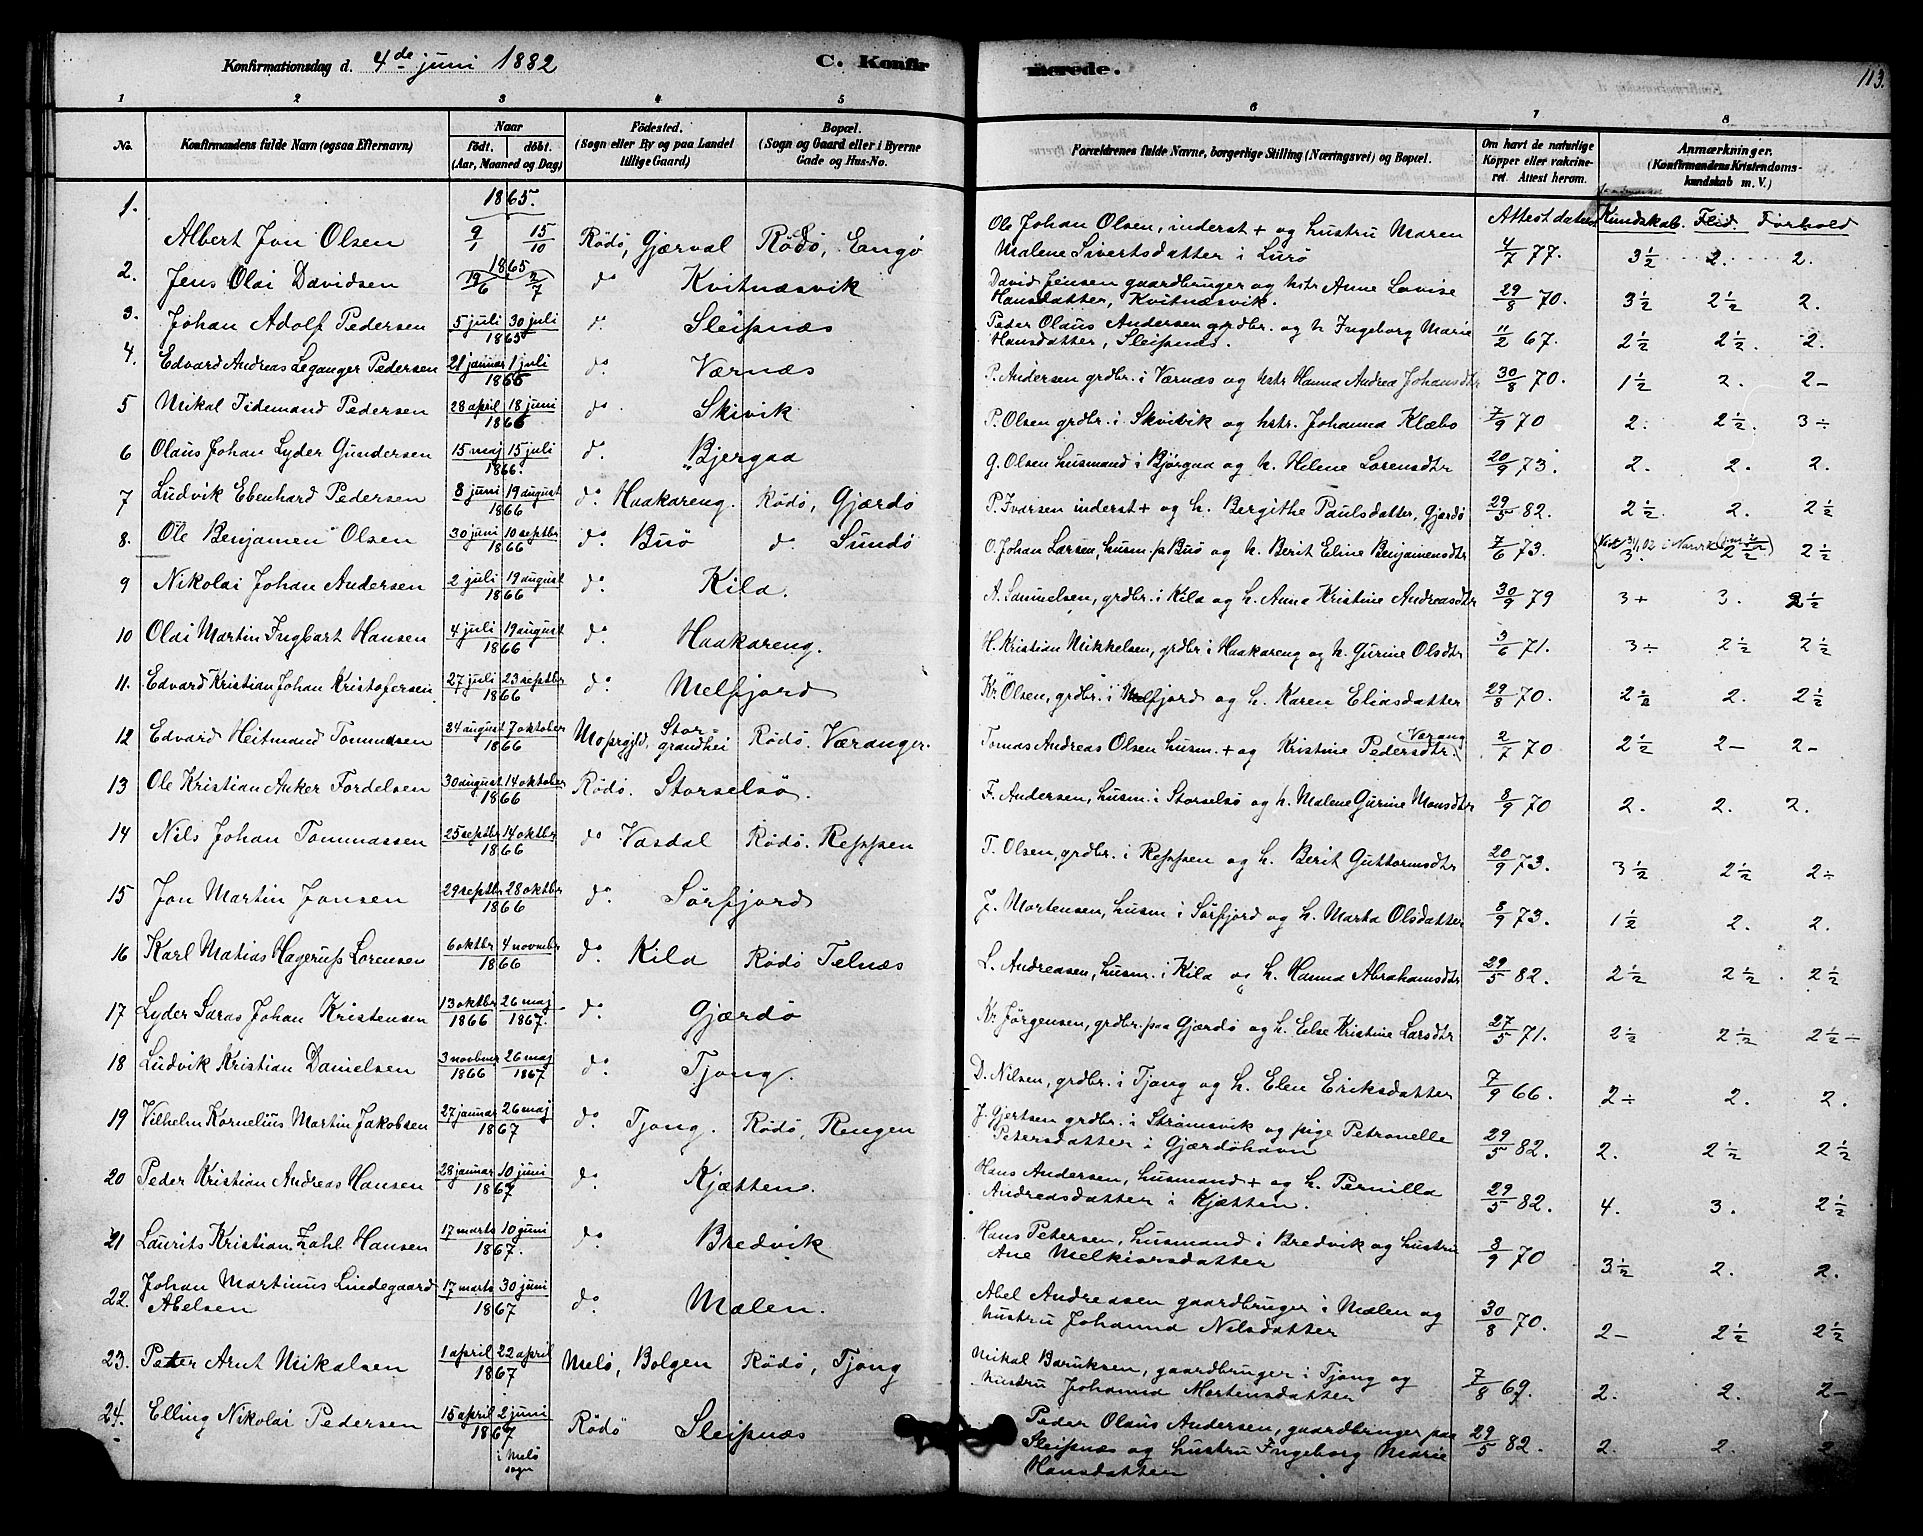 Konfirmationsdag d. 4de juni 1882 C. Konfirmerede. 113.
1 2 3 4 5 6 7 8
No. Konfirmandens fulde Navn (ogsaa Efternavn) Naar födt. döbt. (Aar, Maaned og Dag) Födested. (Sogn eller By og paa Landet tillige Gaard) Bopæl. (Sogn og Gaard eller i Byerne Gade og Hus-No. Forældrenes fulde Navne, borgerlige Stilling (Næringsvei) og Bopæl. Om havt de naturlige Kopper eller vakcineret. Attest herom. Anmærkninger. (Konfirmandens Kristendomskundskab m. V.)
1865. Attest dateret Kundskab. Flid. Forhold
1. Albert Jon Olsen 9/1 15/10 Rödö, Gjærval Rödö, Eengö Ole Johan Olsen, inderst + og hustru Maren Malene Sivertsdatter i Lurö 4/7 77. 3½ 2. 2.
2. Jens Olai Davidsen 1865 19/6 2/7 do Kvitnæsvik David Jensen gaardbruger og hstr Anne Lovise Hansdatter, Kvitnæsvik. 29/8 70. 3½ 2½ 2.
3. Johan Adolf Pedersen 5 juli 30 juli 1865 do Sleipnæs Peder Olaus Andersen grdbr. og h Ingeborg Marie Hansdatter, Sleipnæs. 11/2 67. 2½ 2½. 2.
4. Edvard Andreas Leganger Pedersen 21 januar 1 juli 1866 do Værnæs P. Andersen grdbr. i Værnæs og hstr Hanna Andrea Johansdtr 30/8 70. 1½ 2. 2-
5 Mikal Tidemand Pedersen 28 april 18 juni 1866 do Skivik P. Olsen grdbr. i Skvivik og hstr. Johanna Klæbo 7/9 70 2. 2½. 3÷
6 Olaus Johan Lyder Gundersen 15 maj 15 juli 1866. do Bjergaa G. Olsen husmand i Björgaa og h. Helene Lorensdtr 20/9 73. 2. 2. 2.
7 Ludvik Ebenhard Pedersen 8 juni 19 august 1866 do Haakareng. Rödö, Gjærdö P. Ivarsen inderst + og h. Bergithe Paulsdatter, Gjerdö 29/5 82. 2½. 2. 2½
8. Ole Benjamen Olsen 30 juni 10 septbr 1866 do Buö do. Sundö O. Johan Larsen, husm. p Buö og h. Berit Eline Benjaminsdtr 7/6 73. 3. 2½ 2½
9 Nikolai Johan Andersen 2 juli 19 august 1866 do Kila. A. Samuelsen, grdbr. i Kila og h. Anna Kristine Andreasdtr 30/9 79 3+ 3. 2½
10 Olai Martin Ingbart Hansen 4 juli 19 august 1866 do Haakareng. H. Kristian Mikkelsen, grdbr. i Haakareng og h. Gurine Olsdtr 3/6 71. 3÷ 2½ 2½
11. Edvard Kristian Johan Kristofersen 27 juli 23 septbr 1866 do Melfjord Kr. Olsen, grdbr. i Melfjord og h. Karen Eliasdatter 29/8 70. 2½ 2. 2½
12 Edvard Heitmand Tommasen 24 august 7 oktober 1866 Mo prgjld, Storgrandhei Rödö. Væranger. Tomas Andreas Olsen husm. + og Kristine Pedersdtr. Værang 2/7 70 2½ 2- 2-
13 Ole Kristian Anker Fordelsen 30 august 14 oktober 1866 Rödö. Storselsö. F. Andersen, husm. i Storselsö og h. Malene Gurine Monsdtr 8/9 70 2. 2. 2.
14 Nils Johan Tommassen 25 septbr 14 oktbr 1866 do Vasdal Rödö. Reppen T. Olsen, grdbr. i Reppen og h. Berit Guttormsdtr 20/9 73. 3½ 2½ 2÷
15 Jon Martin Jonsen 29 septbr 28 oktbr 1866 do. Sörfjord J. Mortensen, husm i Sörfjord og h. Marta Olsdatter 8/9 73. 1½ 2. 2.
16 Karl Matias Hagerup Lorensen 6 oktbr 4 novmbr 1866 do. Kila Rödö Telnæs L. Andreasen, husm. i Kila og h. Hanna Abrahamsdtr 29/5 82. 2½ 2½. 2½
17 Lyder Saras Johan Kristensen 13 oktbr 1866 26 maj 1867. do. Gjærdö Kr. Jörgensen, grdbr. paa Gjærdö og h. Else Kristine Larsdtr 27/5 71. 2½ 2½ 2½÷
18 Ludvik Kristian Danielsen 3 novbmr 1866 26 maj 1867 do. Tjong. D. Nilsen, grdbr. i Tjong og h. Elen Eriksdatter 7/9 66. 2÷ 2. 2.
19 Vilhelm Kornelius Martin Jakobsen 27 januar 26 maj 1867 do. Tjong. Rödö, Rengen J. Gjertsen grdbr. i Strömsvik og pige Petronelle Petersdatter i Gjærdöhavn 29/5 82. 2. 2½ 2½
20 Peder Kristian Andreas Hansen 28 januar 10 juni 1867 do. Kjætten. Hans Andersen, husmand + og h. Pernilla Andreasdatter i Kjætten. 29/5 82. 4. 3. 2½
21 Laurits Kristian Zahl Hansen 17 marts 10 juni 1867. do. Bredvik Hans Petersen, husmand i Bredvik og hustru Ane Melkiorsdatter 8/9 70 3½ 2. 2.
22. Johan Martinus Lindegaard Abelsen 17 marts 30 juni 1867 do. Mælen. Abel Andreasen gaardbruger i Mælen og hustru Johanna Nilsdatter 30/8 70. 2- 2½ 2½
23. Peter Arnt Mikalsen 1 april 22 april 1867 Melö, Bolgen Rödö, Tjong Mikal Baruksen, gaardbruger i Tjong og hustru Johanna Mortensdatter 7/8 69. 2. 2. 2-
24. Elling Nikolai Pedersen 15 april 2 juni 1867 i Melö sogn Rödö Sleipnæs Peder Olaus Andersen, gaardbruger paa Sleipnæs og hustru Ingeborg Marie Hansdatter 29/5 82. 2. 2. 2